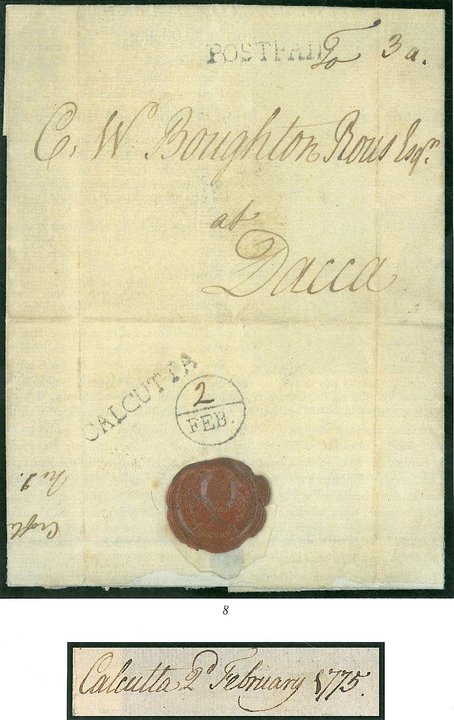 POSTPAID To 3 a.
C. W Boughton Rous Esqr.
at
Dacca
CALCUTTA
2
FEB.
8
Calcutta 2d February 1775.